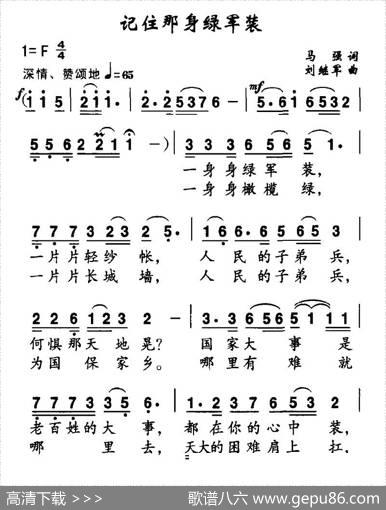 记住那身绿军装
1=F 4/4
马强词
深情、赞颂地 ♩=65
刘继军曲
f (i i 5 | 2 i i. | 2. 2 5 3 7 6 - | mf 5. 6 i 6 5 3 2
5 5 6 7 6 2 2 i i - ) | 3 3 3 6 5 6 5 1. |
一身身绿军装,
一身身橄榄绿,
7 7 7 3 2 3 2 5. | 1 6 6. 5 6 5 3 - |
一片片轻纱帐, 人民的子弟兵,
一片片长城墙, 人民的子弟兵,
2 2 6 1 2 3 2 - | 3. 3 5 6 5 i i |
何惧那天地晃? 国家大事是
为国保家乡。 哪里有难就
7 7 7 7 3 3 5 6. | 1. 2 3 7 6 5 6 5 - |
老百姓的大事, 都在你的心中装,
哪里去, 天大的困难肩上扛,
高清下载 >>> 歌谱八六 www.gepu86.com